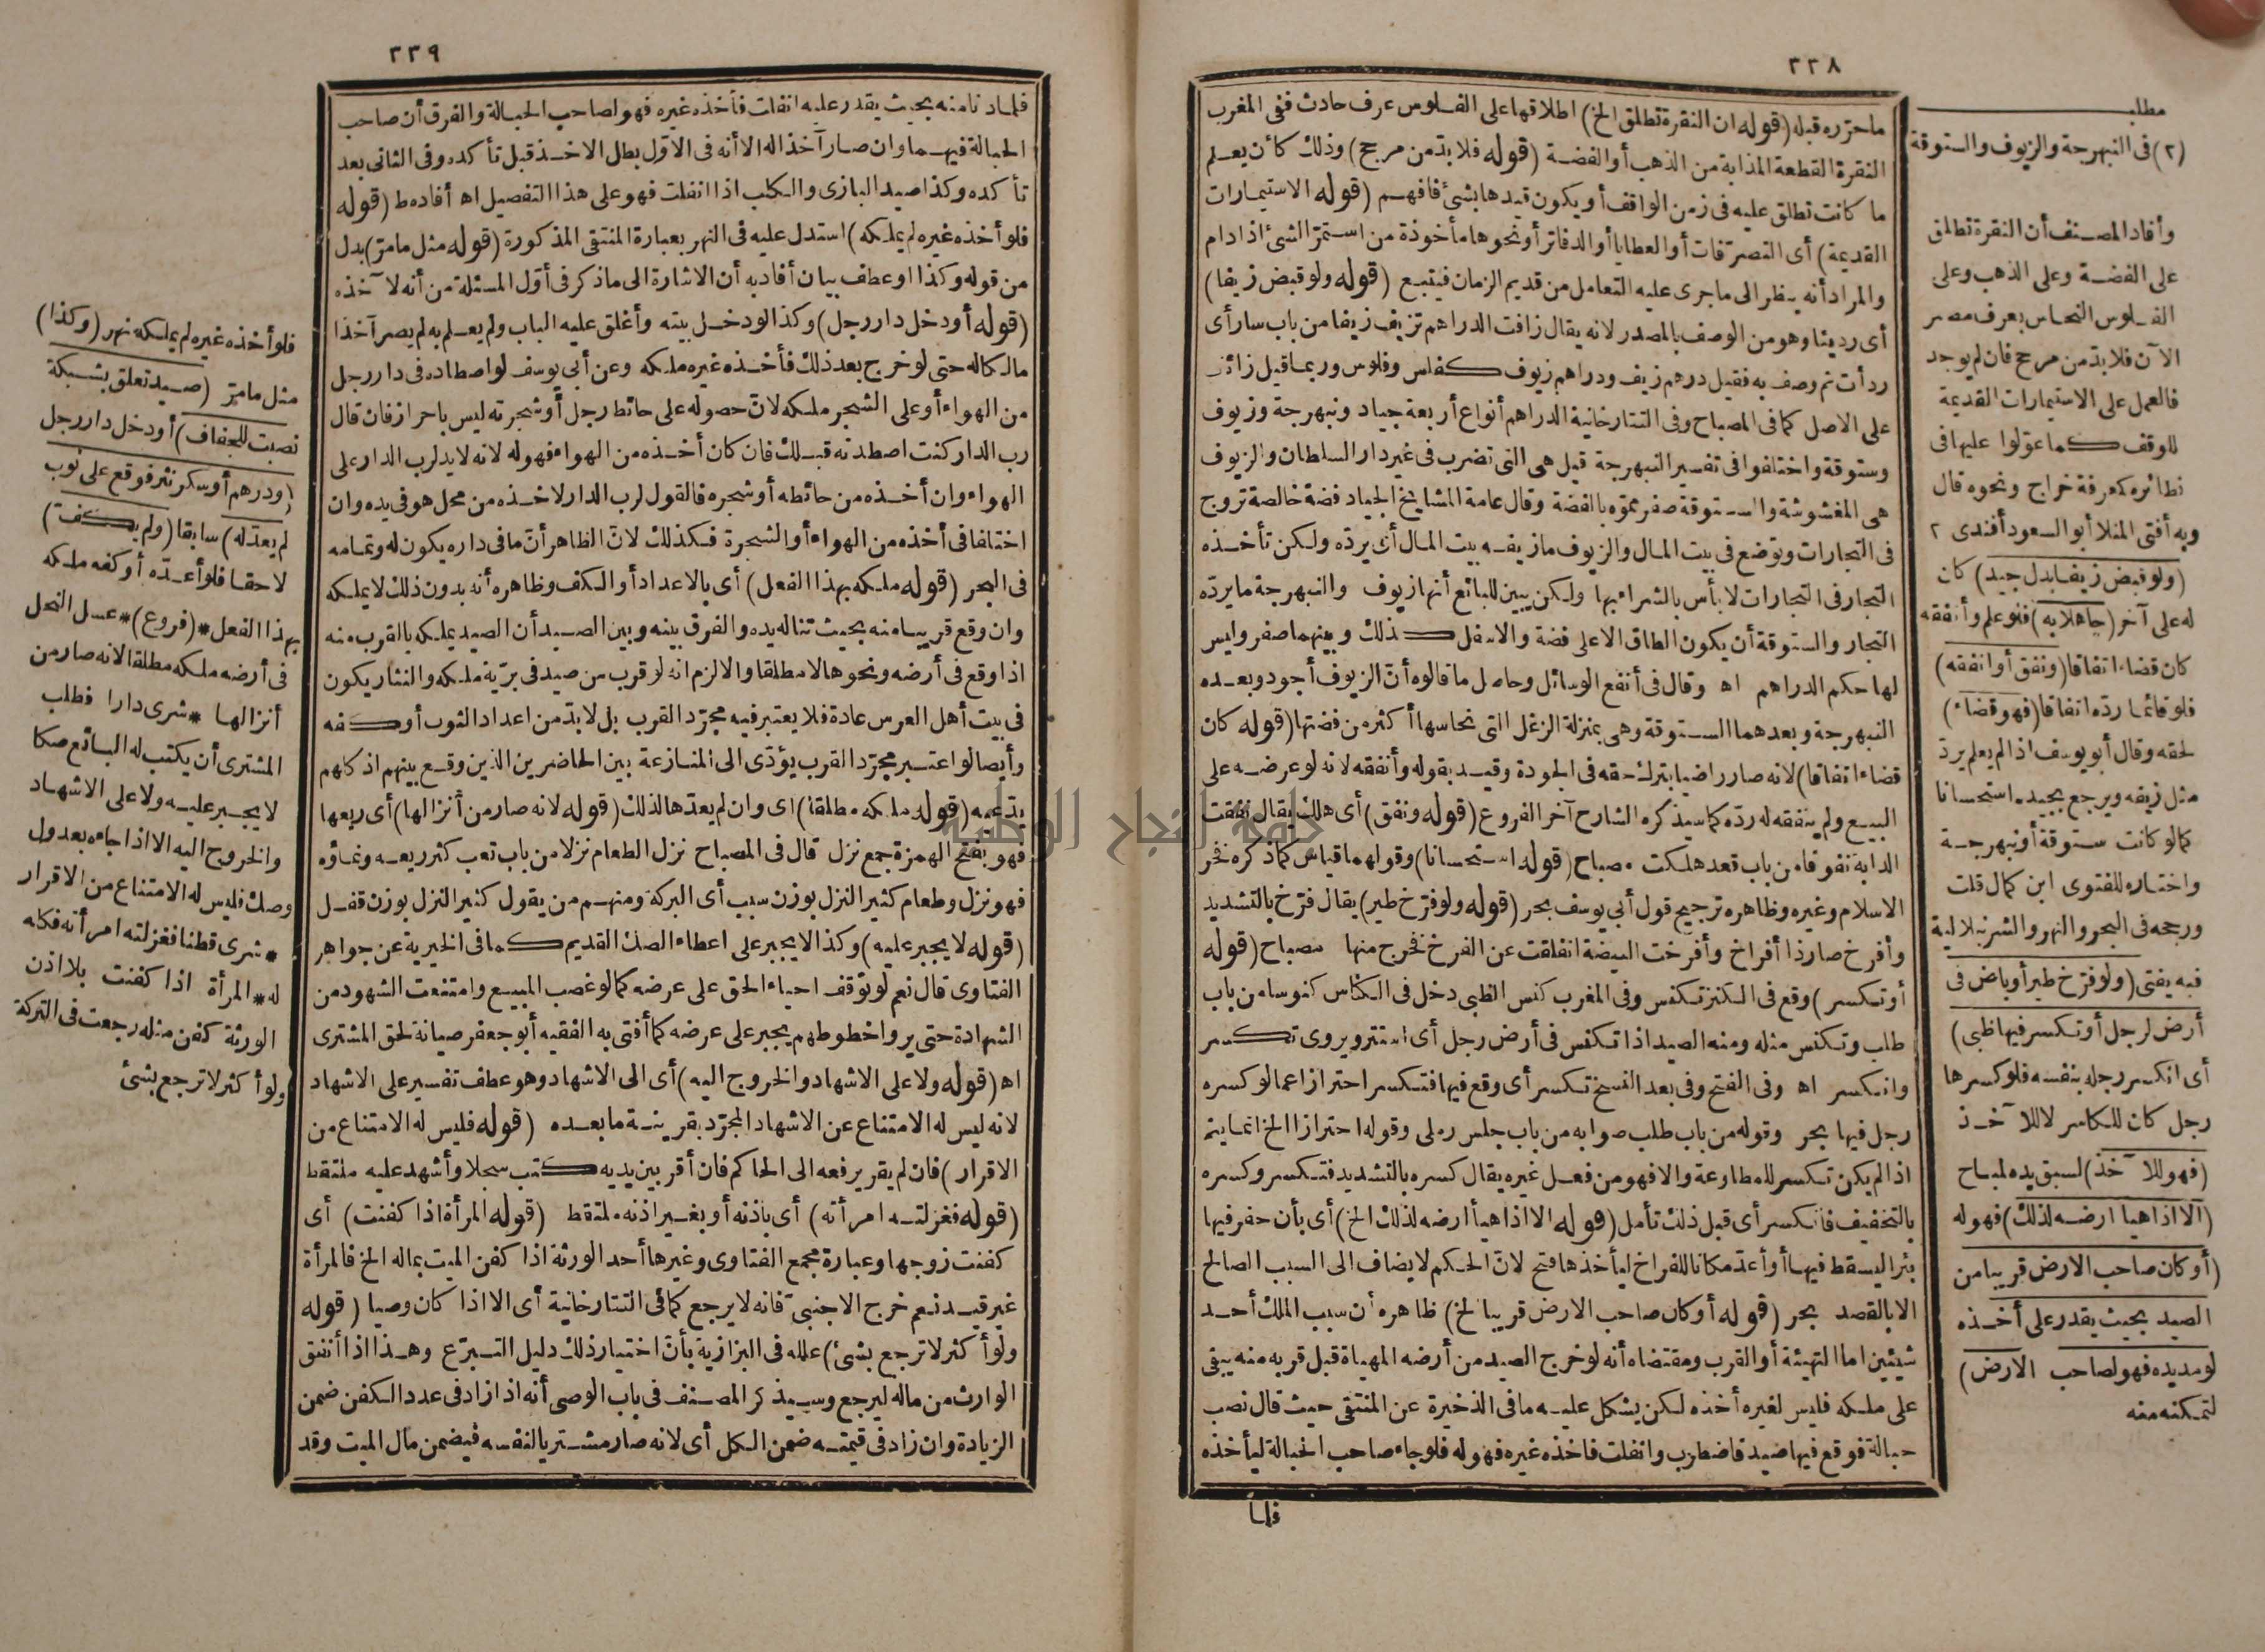 ٣٣٨
ما حرّره قبله (قوله ان النقرة تطلق الخ) اطلاقها على الفلوس عرف حادث ففى المغرب
النقرة القطعة المذابة من الذهب أو الفضة (قوله فلا بدّ من مرجح) وذلك كأن يعلم
ما كانت تطلق عليه فى زمن الواقف أو يكون قيدها بشئ فافهم (قوله الاستيمارات
القديمة) أى التصرّفات أو العطايا أو الدفاتر أو نحوها مأخوذة من استمرّ الشئ اذا دام
والمراد أنه ينظر الى ما جرى عليه التعامل من قديم الزمان فيتبع (قوله ولو قبض زيفا)
أى رديئا وهو من الوصف بالمصدر لانه يقال زافت الدراهم تزيف زيفا من باب سار أى
ردأت ثم وصف به فقيل درهم زيف ودراهم زيوف كفلس وفلوس وربما قيل زائف
على الاصل كما فى المصباح وفى التتارخانية الدراهم أنواع أربعة جياد ونبهرجة وزيوف
وستوقة واختلفوا فى تفسير النبهرجة قيل هى التى تضرب فى غير دار السلطان والزيوف
هى المغشوشة والستوقة صفر مموّه بالفضة وقال عامة المشايخ الجياد فضة خالصة تروج
فى التجارات وتوضع فى بيت المال والزيوف ما زيفه بيت المال أى يردّه ولكن تأخذه
التجار فى التجارات لا بأس بالشراء بها ولكن يبين للبائع أنها زيوف والنبهرجة ما يردّه
التجار والستوقة أن يكون الطاق الاعلى فضة والاسفل كذلك وبينهما صفر وليس
لها حكم الدراهم اه وقال فى أنفع الوسائل وحاصل ما قالوه أنّ الزيوف أجود وبعده
النبهرجة وبعدهما الستوقة وهى بمنزلة الزغل التى نحاسها أكثر من فضتها (قوله كان
قضاء اتفاقا) لانه صار راضيا بترك حقه فى الجودة وقيد بقوله وأنفقه لانه لو عرضه على
البيع ولم ينفقه له ردّه كما سيذكره الشارح آخر الفروع (قوله ونفق) أى هلك يقال نفقت
الدابة نفوقا من باب قعد هلكت مصباح (قوله استحسانا) وقولهما قياس كما ذكره فخر
الاسلام وغيره وظاهره ترجيح قول أبى يوسف بحر (قوله ولو فرّخ طير) يقال فرّخ بالتشديد
وأفرخ صار ذا أفراخ وأفرخت البيضة انفلقت عن الفرخ فخرج منها مصباح (قوله
أو تكسر) وقع فى الكنز تكنس وفى المغرب كنس الظبى دخل فى الكناس كنوسا من باب
طلب وتكنس مثله ومنه الصيد اذا تكنس فى أرض رجل أى استتر ويروى تكسر
وانكسر اه وفى الفتح وفى بعد النسخ تكسر أى وقع فيها فتكسر احترازا عما لو كسره
رجل فيها بحر وقوله من باب طلب صوابه من باب جلس رملى وقوله احترازا الخ انما يتم
اذا لم يكن تكسر للمطاوعة والا فهو من فعل غيره يقال كسره بالتشديد فتكسر وكسره
بالتخفيف فانكسر أى قبل ذلك تأمل (قوله الا اذا هيأ ارضه لذلك الخ) أى بأن حفر فيها
بئرا ليسقط فيها أو أعدّ مكانا للفراخ ليأخذها فتح لانّ الحكم لا يضاف الى السبب الصالح
الا بالقصد بحر (قوله أو كان صاحب الارض قريبا الخ) ظاهره أن سبب الملك أحد
شيئين اما التهيئة أو القرب ومقتضاه أنه لو خرج الصيد من أرضه المهيأة قبل قربه منه يبقى
على ملكه فليس لغيره أخذه لكن يشكل عليه ما فى الذخيرة عن المنتقى حيث قال نصب
حبالة فوقع فيها صيد فاضطرب وانفلت فاخذه غيره فهو له فلو جاء صاحب الحبالة ليأخذه
فلما
مطلبـ
(٢) فى النبهرجة والزيوف والستوقة
وأفاد المصنف أن النقرة تطلق
على الفضة وعلى الذهب وعلى
الفلوس النحاس بعرف مصر
الآن فلا بدّ من مرجح فان لم يوجد
فالعمل على الاستيمارات القديمة
للوقف كما عوّلوا عليها فى
نظائره كمعرفة خراج ونحوه قال
وبه أفتى المنلا أبو السعود أفندى ٢
(ولو قبض زيفا بدل جيد) كان
له على آخر (جاهلا به) فلو علم وأنفقه
كان قضاء اتفاقا (ونفق أو انفقه)
فلو قائما ردّه اتفاقا (فهو قضاء)
لحقه وقال أبو يوسف اذا لم يعلم يردّ
مثل زيفه ويرجع بجيده استحسانا
كما لو كانت ستوقة أو نبهرجة
واختاره للفتوى ابن كمال قلت
ورجحه فى البحر والنهر والشرنبلالية
فبه يفتى (ولو فرّخ طير أو باض فى
أرض لرجل أو تكسر فيها ظبى)
أى انكسر رجله بنفسه فلو كسرها
رجل كان للكاسر لا للآخذ
(فهو للآخذ) لسبق يده لمباح
(الا اذا هيأ ارضه لذلك) فهو له
(أو كان صاحب الارض قريبا من
الصيد بحيث يقدر على أخذه
لو مد يده فهو لصاحب الارض)
لتمكنه منه
٣٣٩
فلما دنا منه بحيث يقدر عليه انفلت فأخذه غيره فهو لصاحب الحبالة والفرق أن صاحب
الحبالة فيهما وان صار آخذا له الا أنه فى الاوّل بطل الاخذ قبل تأكده وفى الثانى بعد
تأكده وكذا صيد البازى والكلب اذا انفلت فهو على هذا التفصيل اه أفاده ط (قوله
فلو أخذه غيره لم يملكه) استدل عليه فى النهر بعبارة المنتقى المذكورة (قوله مثل ما مرّ) بدل
من قوله وكذا او عطف بيان أفاد به أن الاشارة الى ما ذكر فى أوّل المسئلة من أنه لآخذه
(قوله أو دخل دار رجل) وكذا لو دخل بيته وأغلق عليه الباب ولم يعلم به لم يصر آخذا
مالكا له حتى لو خرج بعد ذلك فأخذه غيره ملكه وعن أبى يوسف لو اصطاده فى دار رجل
من الهواء أو على الشجر ملكه لانّ حصوله على حائط رجل أو شجرته ليس باحراز فان قال
رب الدار كنت اصطدته قبلك فان كان أخذه من الهواء فهو له لانه لا يد لرب الدار على
الهواء وان أخذه من حائطه أو شجره فالقول لرب الدار لاخذه من محل هو فى يده وان
اختلفا فى أخذه من الهواء أو الشجرة فكذلك لانّ الظاهر أنّ ما فى داره يكون له وتمامه
فى البحر (قوله ملكه بهذا الفعل) أى بالاعداد أو الكف وظاهره أنه بدون ذلك لا يملكه
وان وقع قريبا منه بحيث تناله يده والفرق بينه وبين الصيد أن الصيد يملكه بالقرب منه
اذا وقع فى أرضه ونحوها لا مطلقا والا لزم انه لو قرب من صيد فى برّية ملكه والنثار يكون
فى بيت أهل العرس عادة فلا يعتبر فيه مجرّد القرب بل لا بدّ من اعداد الثوب أو كفه
وأيضا لو اعتبر مجرّد القرب يؤدّى الى المنازعة بين الحاضرين الذين وقع بينهم اذ كلهم
يدّعيه (قوله ملكه مطلقا) اى وان لم يعدّها لذلك (قوله لانه صار من أنزالها) أى ريعها
فهو بفتح الهمزة جمع نزل قال فى المصباح نزل الطعام نزلا من باب تعب كثر ريعه ونماؤه
فهو نزل وطعام كثير النزل بوزن سبب أى البركة ومنهم من يقول كثير النزل بوزن قفل
(قوله لا يجبر عليه) وكذا لا يجبر على اعطاء الصك القديم كما فى الخيرية عن جواهر
الفتاوى قال نعم لو توقف احياء الحق على عرضه كما لو غصب المبيع وامتنعت الشهود من
الشهادة حتى يروا خطوطهم يجبر على عرضه كما أفتى به الفقيه أبو جعفر صيانة لحق المشترى
اه (قوله ولا على الاشهاد والخروج اليه) أى الى الاشهاد وهو عطف تفسير على الاشهاد
لانه ليس له الامتناع عن الاشهاد المجرّد بقرينة ما بعده (قوله فليس له الامتناع من
الاقرار) فان لم يقر يرفعه الى الحاكم فان أقر بين يديه كتب سجلا وأشهد عليه ملتقط
(قوله فغزلته امرأته) أى باذنه أو بغير اذنه ملتقط (قوله المرأة اذا كفنت) أى
كفنت زوجها وعبارة مجمع الفتاوى وغيرها أحد الورثة اذا كفن الميت بماله الخ فالمرأة
غير قيد نعم خرج الاجنبىّ فانه لا يرجع كما فى التتارخانية أى الا اذا كان وصيا (قوله
ولو أكثر لا ترجع بشئ) علله فى البزازية بأنّ اختيار ذلك دليل التبرّع وهذا اذا أنفق
الوارث من ماله ليرجع وسيذكر المصنف فى باب الوصى أنه اذا زاد فى عدد الكفن ضمن
الزيادة وان زاد فى قيمته ضمن الكل أى لانه صار مشتريا لنفسه فيضمن مال الميت وقد
فلو أخذه غيره لم يملكه نهر (وكذا)
مثل ما مرّ (صيد تعلق بشبكة
نصبت للجفاف) أو دخل دار رجل
(ودرهم أو سكر نثر فوقع على ثوب
لم يعدّ له) سابقا (ولم يكف)
لاحقا فلو أعدّه أو كفه ملكه
بهذا الفعل * (فروع) * عسل النحل
فى أرضه ملكه مطلقا لانه صار من
أنزالها * شرى دارا فطلب
المشترى أن يكتب له البائع صكا
لا يجبر عليه ولا على الاشهاد
والخروج اليه الا اذا جاءه بعدول
وصك فليس له الامتناع من الاقرار
* شرى قطنا فغزلته امرأته فكله
له * المرأة اذا كفنت بلا اذن
الورثة كفن مثله رجعت فى التركة
ولو أكثر لا ترجع بشئ
جامعة النجاح الوطنية